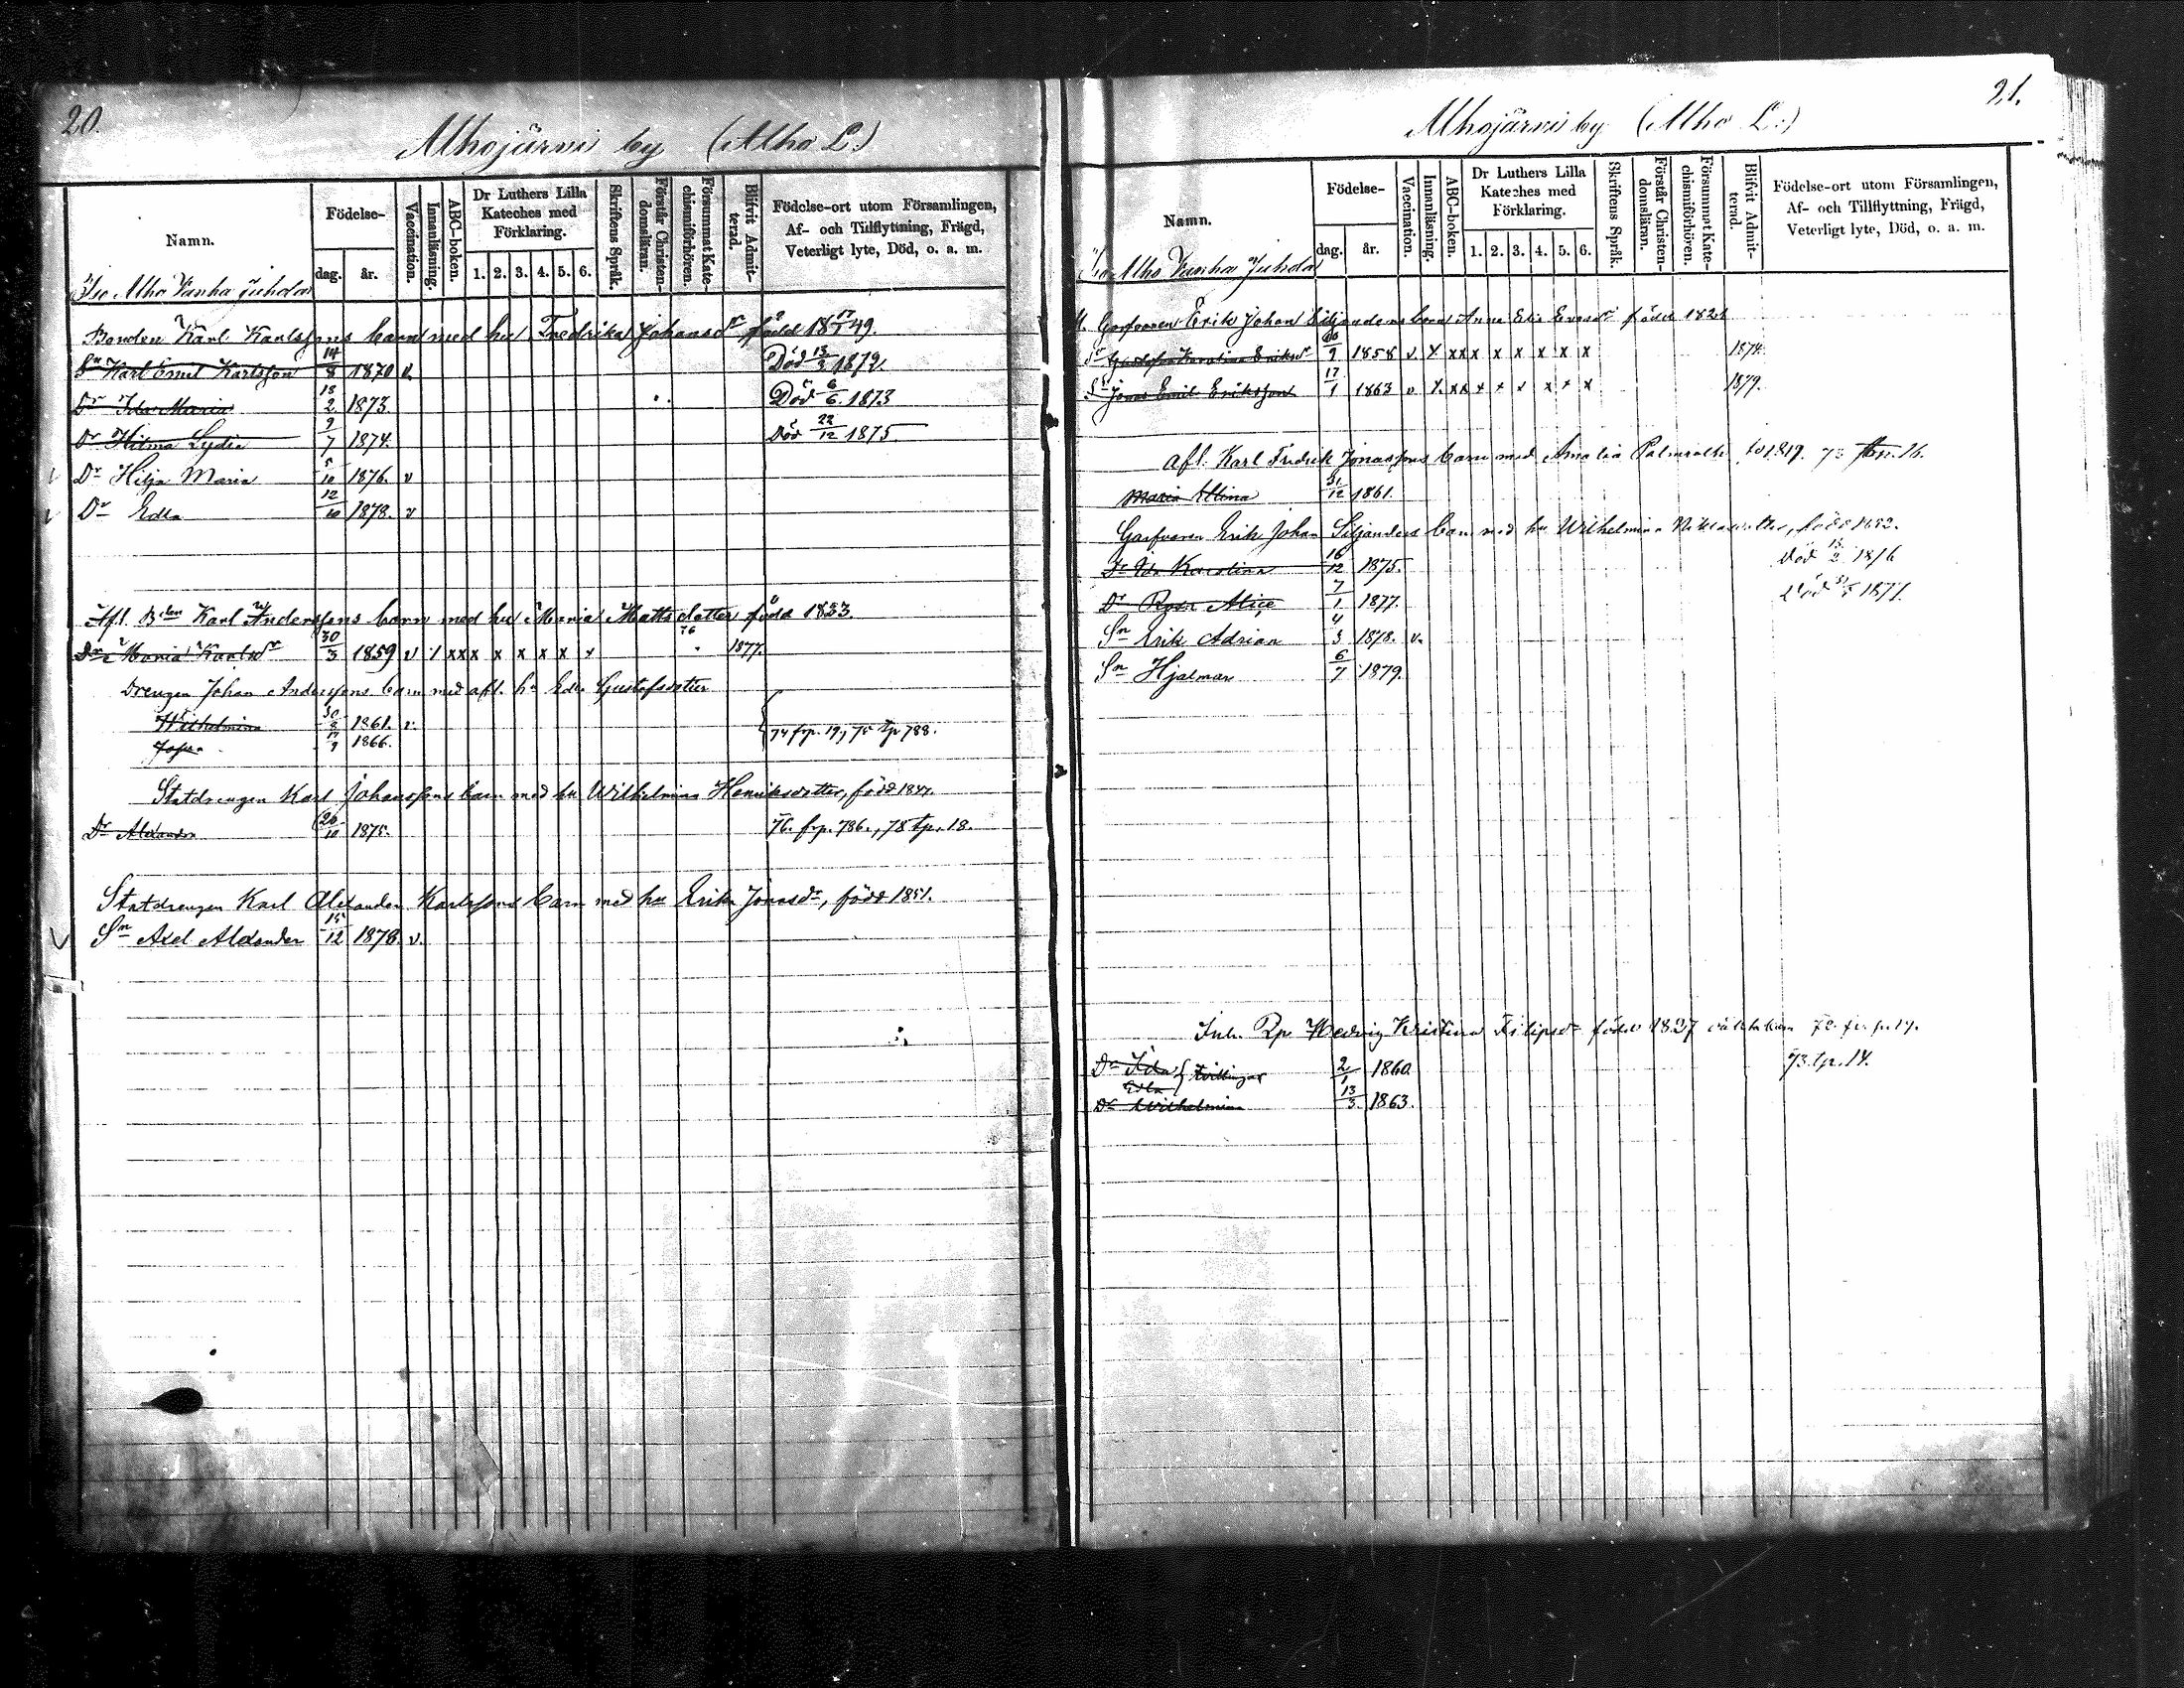 20.
Alhojärvi by (Alho L.)
Namn.
Födelse-
dag.
år.
Vaccination.
Innanläsning.
ABC-boken.
Dr Luthers Lilla Kateches med Förklaring.
1. 2. 3. 4. 5. 6.
Skriftens Språk.
Förstår Christendomsläran.
Försummat Katechismiförhören.
Blifvit Admitterad.
Födelse-ort utom Församlingen, Af- och Tillflyttning, Frägd, Veterligt lyte, Död, o. a. m.
Iso Alho Vanha Juhda
Bonden Karl Karlssons barn med hu Fredrika Johansdr född 1849.
Sn Karl Emil Karlsson 14/8 1870 v. Död 13/3 1872.
Dr Ida Maria 18/2 1873. Död 6/6 1873
Dr Hilma Lydia 9/7 1874. Död 22/12 1875
Dr Hilja Maria 5/10 1876. v
Dr Edla 12/10 1878. v
Afl. Bden Karl Anderssons barn med hu Maria Mattsdotter född 1833.
Dr Maria Karlsdr 30/3 1859 v / x x x x x x x x 76 1877.
Drengen Johan Anderssons barn med afl. hu Edla Gustafsdotter
Wilhelmina 30/8 1861. v.
1866.
74 frp. 19, 75 tp 788.
Statdrengen Karl Johanssons barn med hu Wilhelmina Henriksdotter, född 1847.
Dr Alexandra 26/10 1875. 76. frp. 786., 78 tp. 18.
Statdrengen Karl Alexander Karlssons barn med hu Erika Jonasdr, född 1851.
Sn Axel Alexander 15/12 1878. v.
21.
Alhojärvi by (Alho L.)
Namn.
Födelse-
dag.
år.
Vaccination.
Innanläsning.
ABC-boken.
Dr Luthers Lilla Kateches med Förklaring.
1. 2. 3. 4. 5. 6.
Skriftens Språk.
Förstår Christendomsläran.
Försummat Katechismiförhören.
Blifvit Admitterad.
Födelse-ort utom Församlingen, Af- och Tillflyttning, Frägd, Veterligt lyte, Död, o. a. m.
Iso Alho Vanha Juhda
Garfvaren Erik Johan Siljanders barn Anna född
Gustafva Karolina Eriksdr 1858 v. x x x x x x x x x 1874.
Sn Jonas Emil Eriksson 17/1 1863 v x x x x x x x x 1879.
Afl. Karl Fredrik Jonassons barn med Amalia 1819.
Maria 31/12 1861.
Garfvaren Erik Johan Siljanders barn med hu Wilhelmina född 1852.
Dr Ida Karolina 16/12 1875. Död 13/2 1876
Dr Rosa Alice 7/1 1877. Död 1877.
Sn Erik Adrian 4/3 1878. v.
Sn Hjalmar 6/7 1879.
Inh. Hedvig Kristina Filipsdr 1827
Dr Ida
Edla } tvillingar 2/1 1860. 73. tp. 14.
Dr Wilhelmina 13/3 1863.